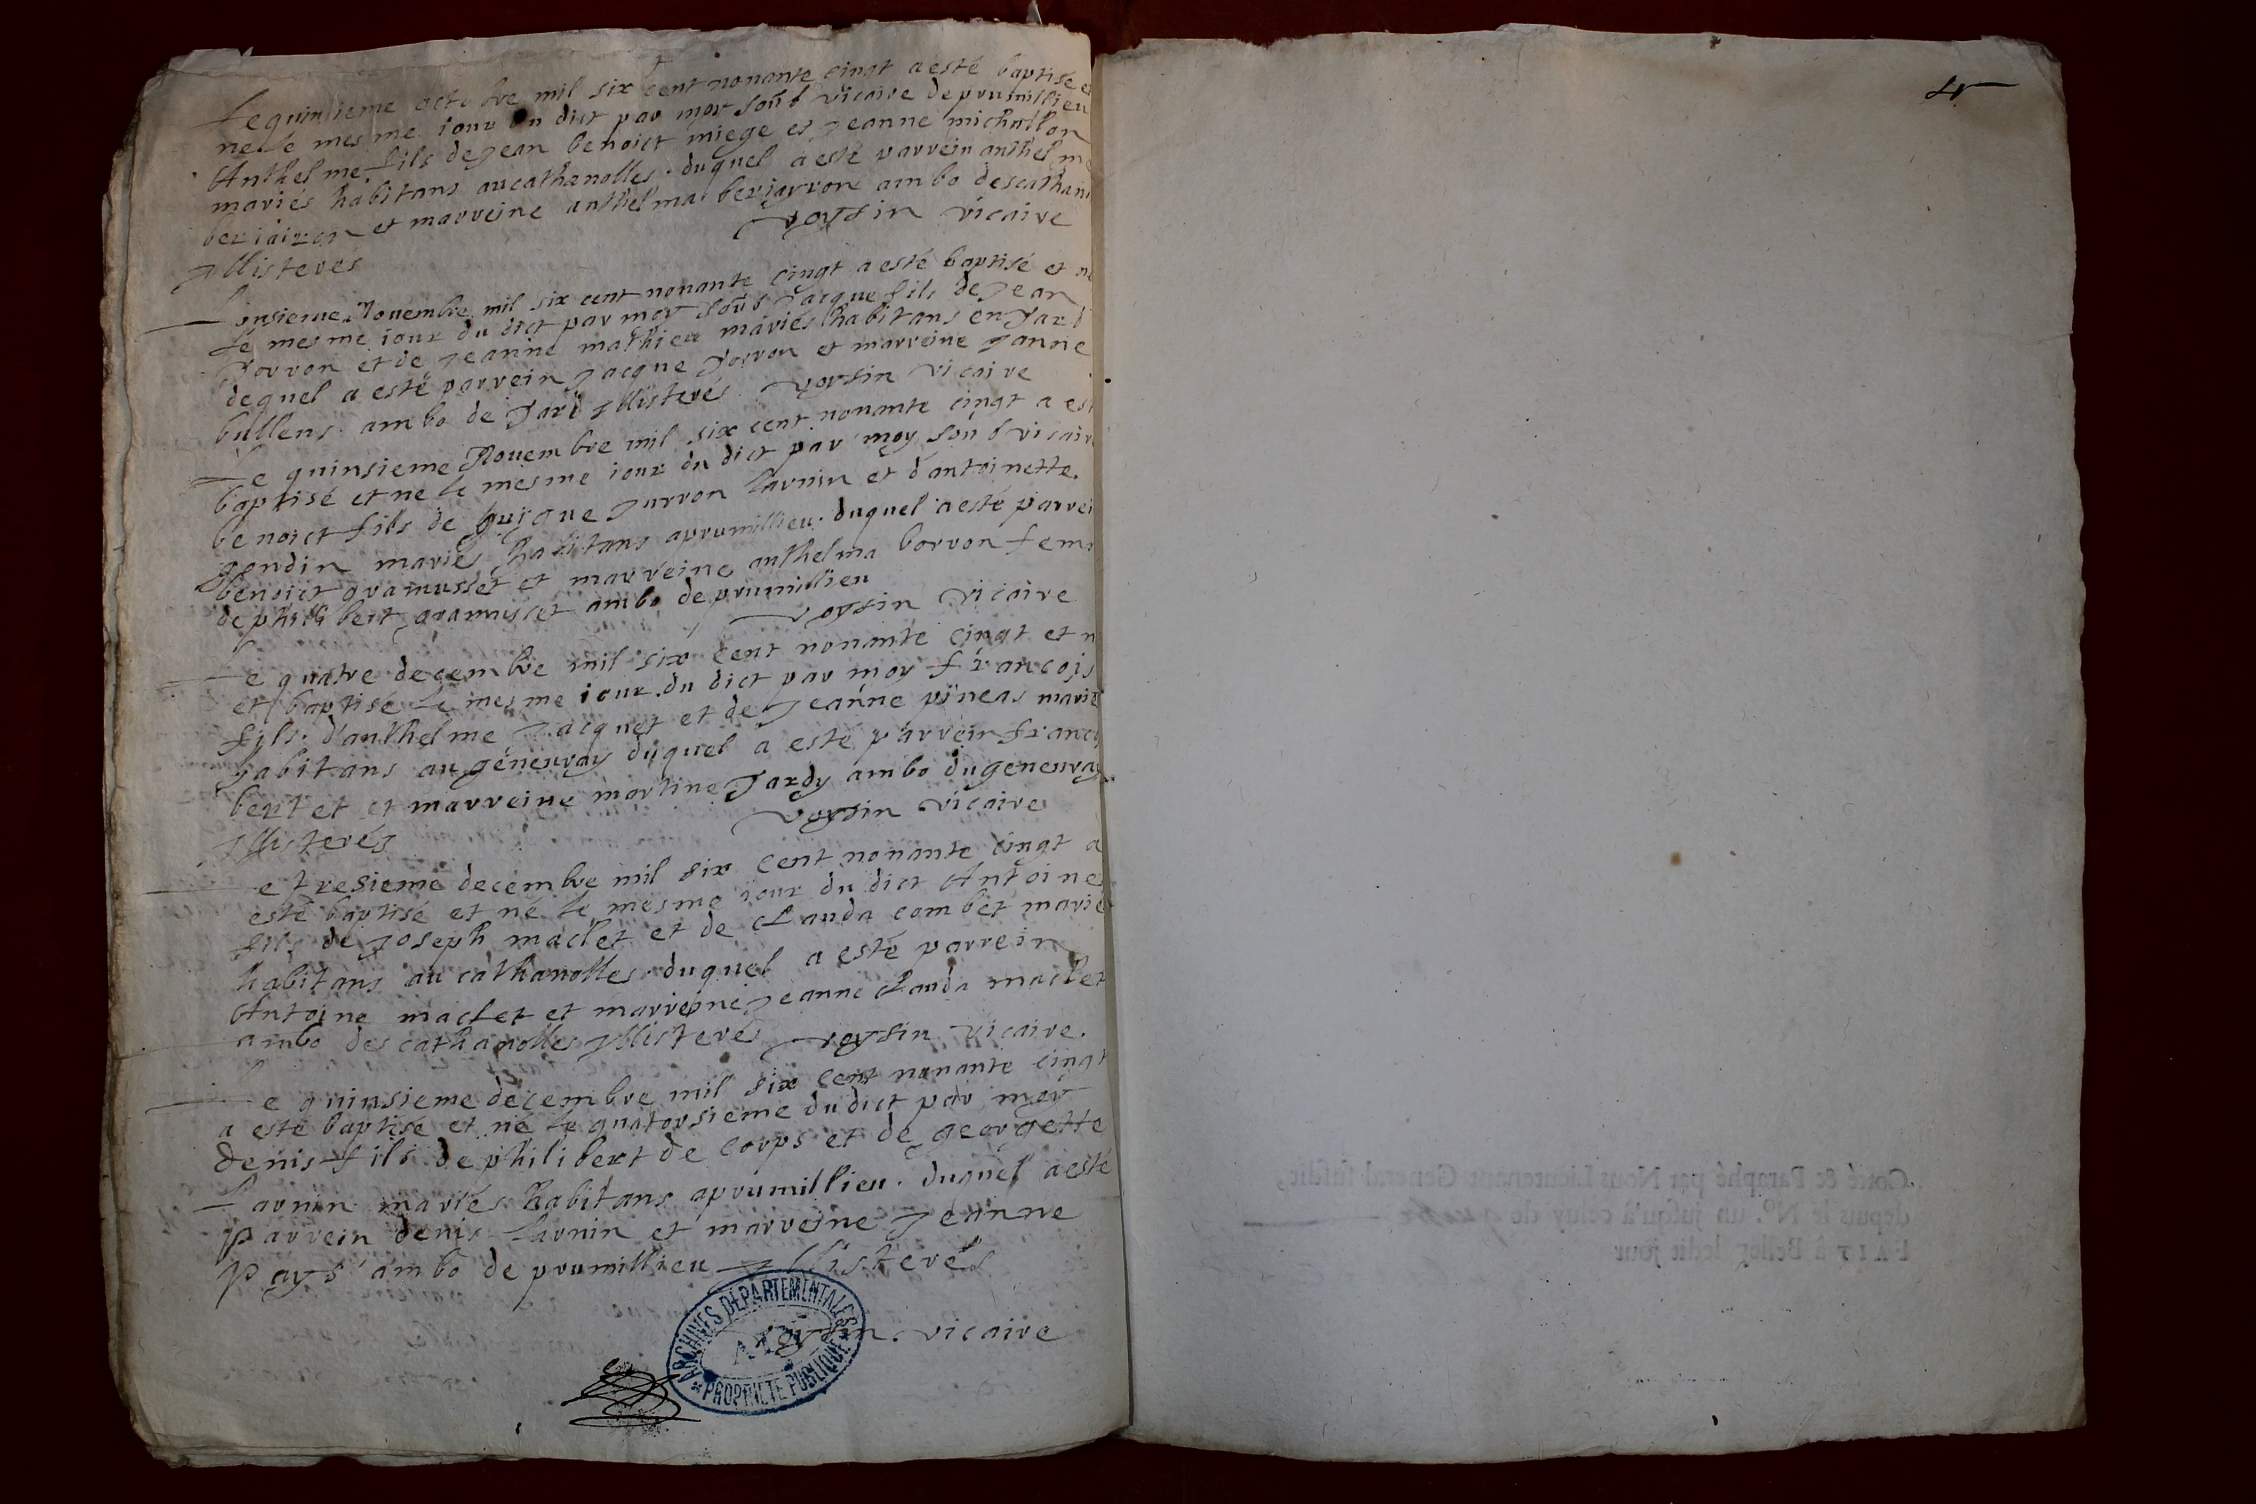 Le quinsieme octobre mil six cent nonante cinqt a esté baptisé et
né le mesme iour du dict par moy soub vicaire de prumillieu
Anthelme fils de Jean benoict miege et Jeanne michallon
mariés habitans au cathanolles. duquel a esté parrein anthelme
beriairon et marreine anthelma beriarrone ambo des cathan
Voysin vicaire
Illisteres
L'onsieme Nouembre mil six cent nonante cinqt a esté baptisé et né
Le mesme iour du dict par moy soub Jacque fils de Jean
Jorron et de Jeanne mathieu mariés habitans en Jard
dequel a esté parrein Jacque Jorron et marreine Janne
bullens ambo de Jard Illisterés Voysin vicaire
Le quinsieme Nouembre mil six cent nonante cinqt a est
baptisé et ne le mesme iour du dict par moy soub vicaire
benoict fils de huigue Jurron Larnin et d'antoinette
gondin mariés habitans a prumillieu. duquel a esté parrein
benoict gramusset et marreine anthelma borron fem
de philibert gramusset ambo de prumillieu
Voysin vicaire
Le quatre decembre mil six cent nonante cinqt et n
et baptisé le mesme iour du dict par moy francois
fils d'anthelme Jacquet et de Jeanne pineas mariés
habitans au geneuray duquel a esté parrein franc
bertet et marreine martine Jardy ambo du geneuray
Voysin vicaire
Illisterés
Le tresieme decembre mil six cent nonante cinqt a
esté baptisé et né le mesme iour du dict Antoine
fils de Joseph maclet et de Clauda combet mariés
habitans au cathanolles. duquel a esté parrein
Antoine maclet et marreine Jeanne Clauda maclet
ambo des cathanolles Illisterés Voysin vicaire.
Le quinsieme decembre mil six cent nonante cinqt
a esté baptisé et né le quatorsieme du dict par moy
denis fils de philibert de Corps et de georgette
Larnin mariés habitans a prumillieu. duquel a esté
parrein denis Larnin et marreine Jeanne
Pays ambo de prumillieu Illisterés
Voysin vicaire
ARCHIVES DÉPARTEMENTALES
AIN
PROPRIÉTÉ PUBLIQUE
Cotté & Paraphé par Nous Lieutenant General susdit,
depuis le N°. un jusqu'à celuy de
FAIT à Belley ledit jour